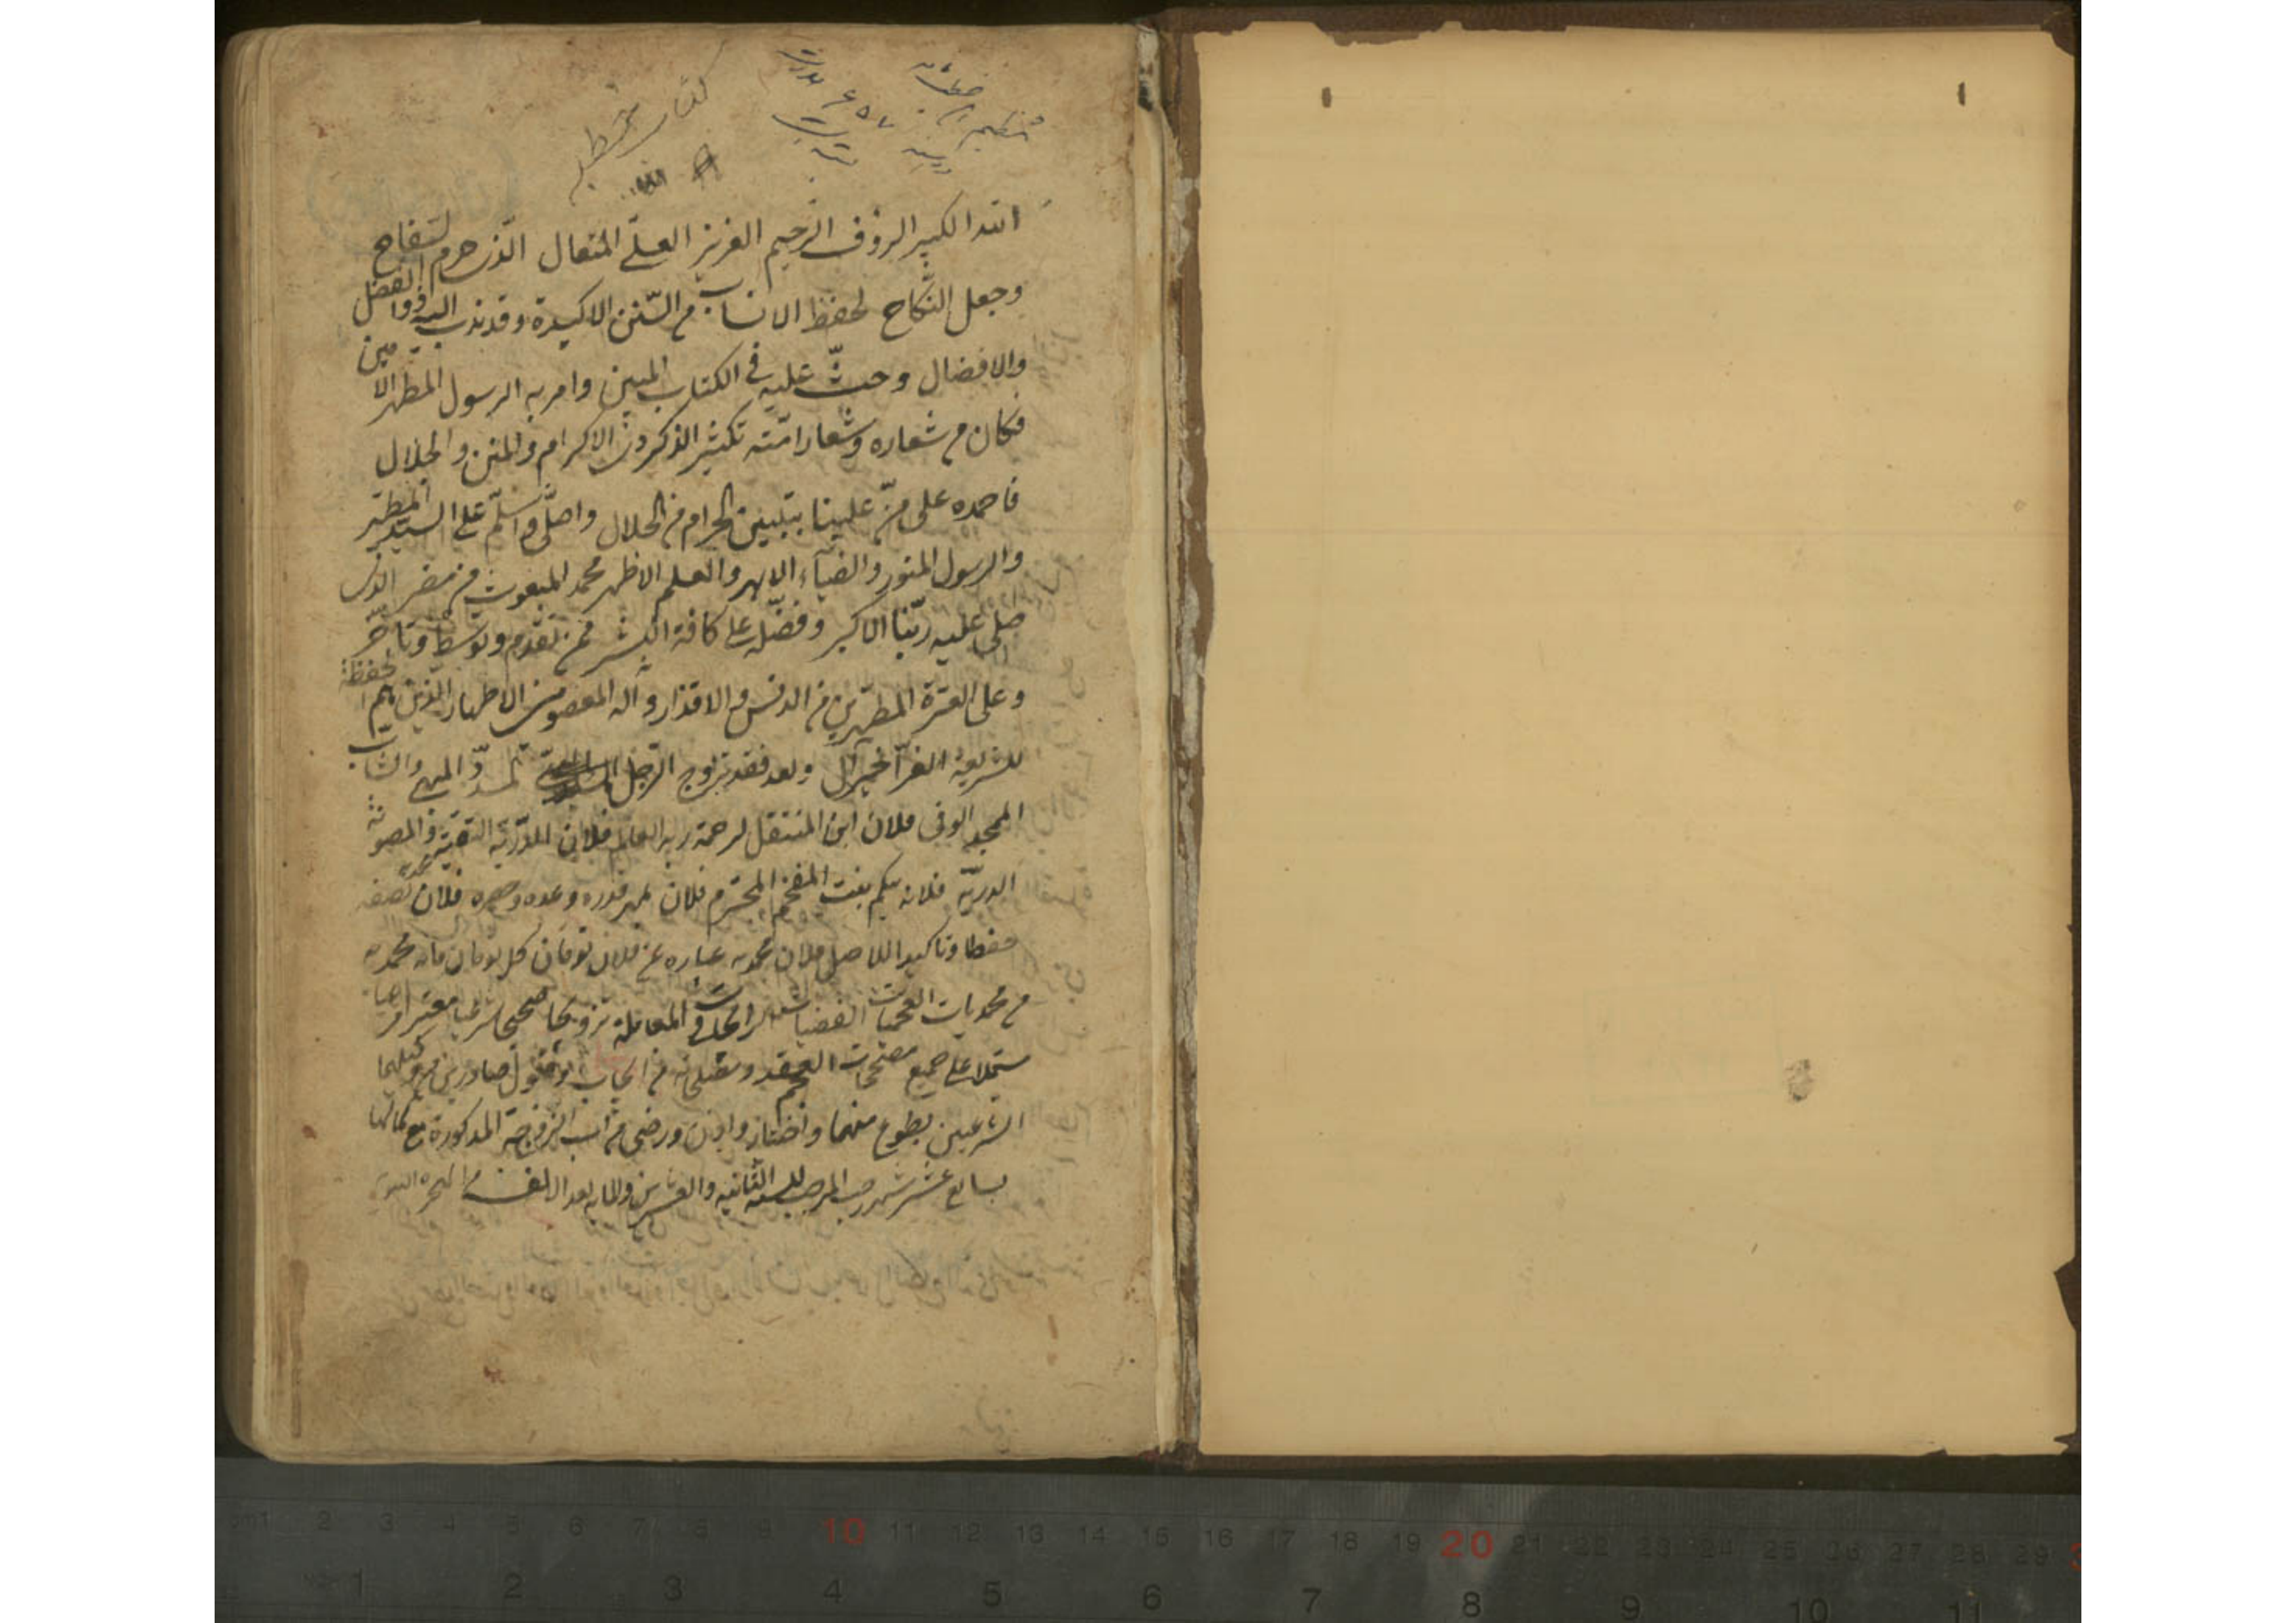 كتاب
٦٥٧
ابتدا الكبير الرؤف الرّحيم العزيز العلىّ المتعال الّذى حرم السّفاح
وجعل النّكاح لحفظ الانساب من السّنن الاكيدة وقد ندب اليه ذو الفضل
والافضال وحثّ عليه فى الكتاب المبين وامر به الرسول المطهر الامين
فكان من شعاره وشعار امّته تكثير الذكر ذى الاكرام والمنن والجلال
فاحمده على منّه علينا بتبيين الحرام من الحلال واصلّى واسلّم على السيد المطهّر
والرسول المنور والضيآء الابهر والعلم الاظهر محمد المبعوث من مضر الذى
صلى عليه ربّنا الاكبر وفضّله على كافة البشر ممن تقدم وتوسّط وتاخّر
وعلى العترة المطهّرين من الدنس والاقذار وآله المعصومين الاطهار الّذين هم لحفظة
للشريعة الغرّآ خير آل وبعد فقد تزوج الرّجل المسدّد البهى والشاب
الممجد الوفى فلان ابن المنتقل لرحمة ربه العالم فلان للدّرّيّة التقية والمصونة
الدريّه فلانه بيكم بنت المفخم المحترم فلان بمهر قدره وعده وحصره فلان نصفه
حفظا وتاكيدا للاصل فلان محمديه عباره عن فلان تومان كل تومان مائه محمديه
من محمديات الفضيات الرايجات فى المعامله تزويجا صحيحا شرعيا معتبرا مرضيا
مشتملا على جميع مصححات العقد من ايجاب وقبول صادرين من وكيلهما
الشرعيين بطوع منهما واختيار واذن ورضى من اب الزوجة المذكورة مع كمالها
بسابع عشر شهر رجب المرجب للسنه الثانيه والعشرين والمايه بعد الالف من الهجره النبويه